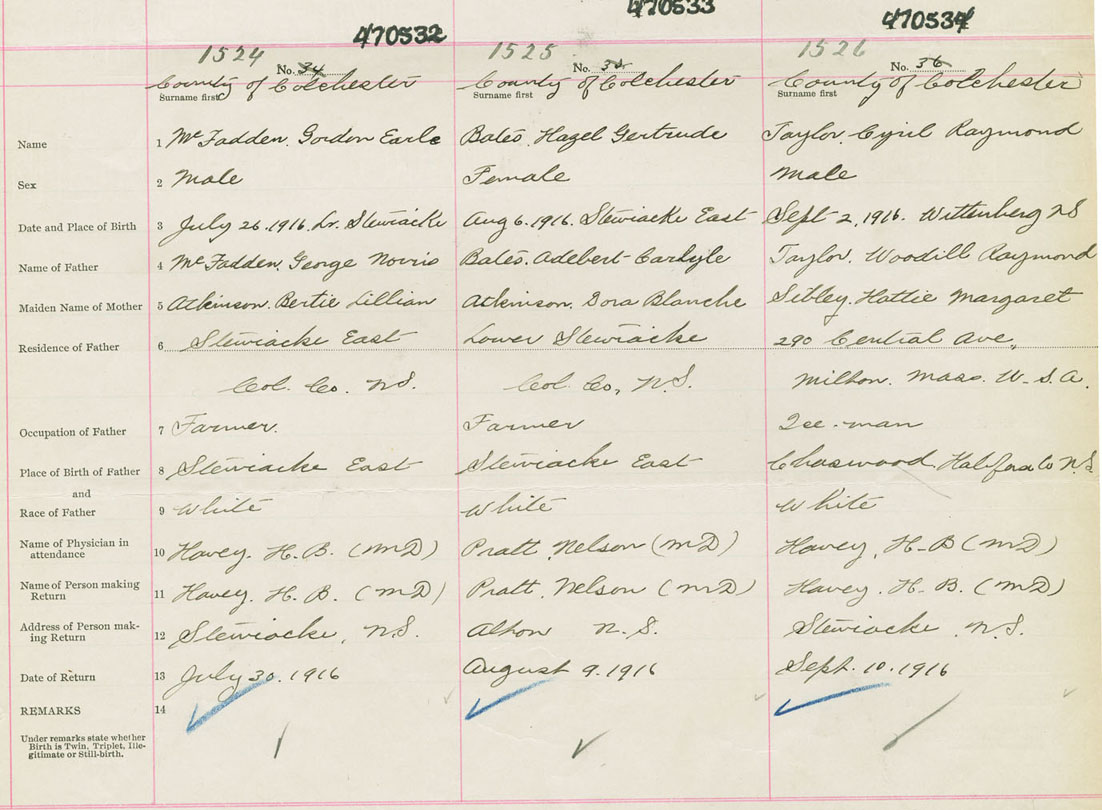 470532 470533 470534
1524 1525 1526
No. 34 No. 35 No. 36
County of Colchester County of Colchester County of Colchester
Surname first Surname first Surname first
Name 1 McFadden. Gordon Earle Bates. Hazel Gertrude Taylor. Cyril Raymond
Sex 2 Male Female Male
Date and Place of Birth 3 July 26.1916. Lr. Stewiacke Aug 6.1916. Stewiacke East Sept 2,1916. Wittenberg NS
Name of Father 4 McFadden. George Norris Bates. Adebert Carlyle Taylor. Woodill Raymond
Maiden Name of Mother 5 Atkinson. Bertie Lillian Atkinson. Dora Blanche Sibley. Hattie Margaret
Residence of Father 6 Stewiacke East Lower Stewiacke 290 Central Ave,
Col. Co. N.S. Col. Co, N.S. Milton. Mass. U.S.A.
Occupation of Father 7 Farmer. Farmer Ice-man
Place of Birth of Father 8 Stewiacke East Stewiacke East Chaswood Halifax Co N.S
and
Race of Father 9 White White White
Name of Physician in
attendance 10 Havey. H. B. (MD) Pratt, Nelson (MD) Havey, H. B (MD)
Name of Person making
Return 11 Havey. H. B. (MD) Pratt. Nelson (MD) Havey. H. B. (MD)
Address of Person mak-
ing Return 12 Stewiacke, N.S. Alton N.S. Stewiacke, N.S.
Date of Return 13 July 30.1916 August 9.1916 Sept. 10.1916
REMARKS 14
Under remarks state whether
Birth is Twin, Triplet, Ille-
gitimate or Still-birth.